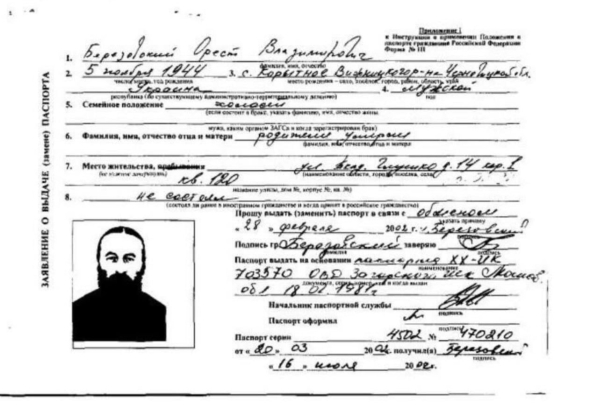 Приложение 1
к Инструкции о применении Положения о
паспорте гражданина Российской Федерации
Форма № 1П
ЗАЯВЛЕНИЕ О ВЫДАЧЕ (замене) ПАСПОРТА
1. Березовский Орест Владимирович
фамилия, имя, отчество
2. 5 ноября 1944 3. с. Корытное Вижницкого р-на Черновицкой обл.
число, месяц, год рождения место рождения - село, поселок, город, район, область, край
Украина 4. Мужской
республика (по существующему административно-территориальному делению) пол
5. Семейное положение холост
(если состоит в браке, указать фамилию, имя, отчество жены
мужа, каким органом ЗАГСа и когда зарегистрирован брак)
6. Фамилия, имя, отчество отца и матери родители умерли
фамилия, имя, отчество отца и матери
7. Место жительства, пребывания ул. д. 14 кор. 2
(не нужное зачеркнуть) (наименование области, города, поселка, села)
кв. 120
название улицы, дом №, корпус №, кв. №)
8. не состоял
(состоял ли ранее в иностранном гражданстве и когда принят в российское гражданство)
Прошу выдать (заменить) паспорт в связи с обменом
указать причину
« 28 » февраля 2002 г. Березовский
Подпись гр. Березовский заверяю
фамилия подпись
Паспорт выдать на основании паспорта XX-ИК
наименование
703570 ОВД Загорского Москов
документа, серия, номер, кем и когда выдан
обл 18.02.1981г.
Начальник паспортной службы
подпись
Паспорт оформил
подпись
Паспорт серии 4502 № 470210
от « 20 » 03 2002 г. получил(а) Березовский
подпись
« 16 » июля 2002г.